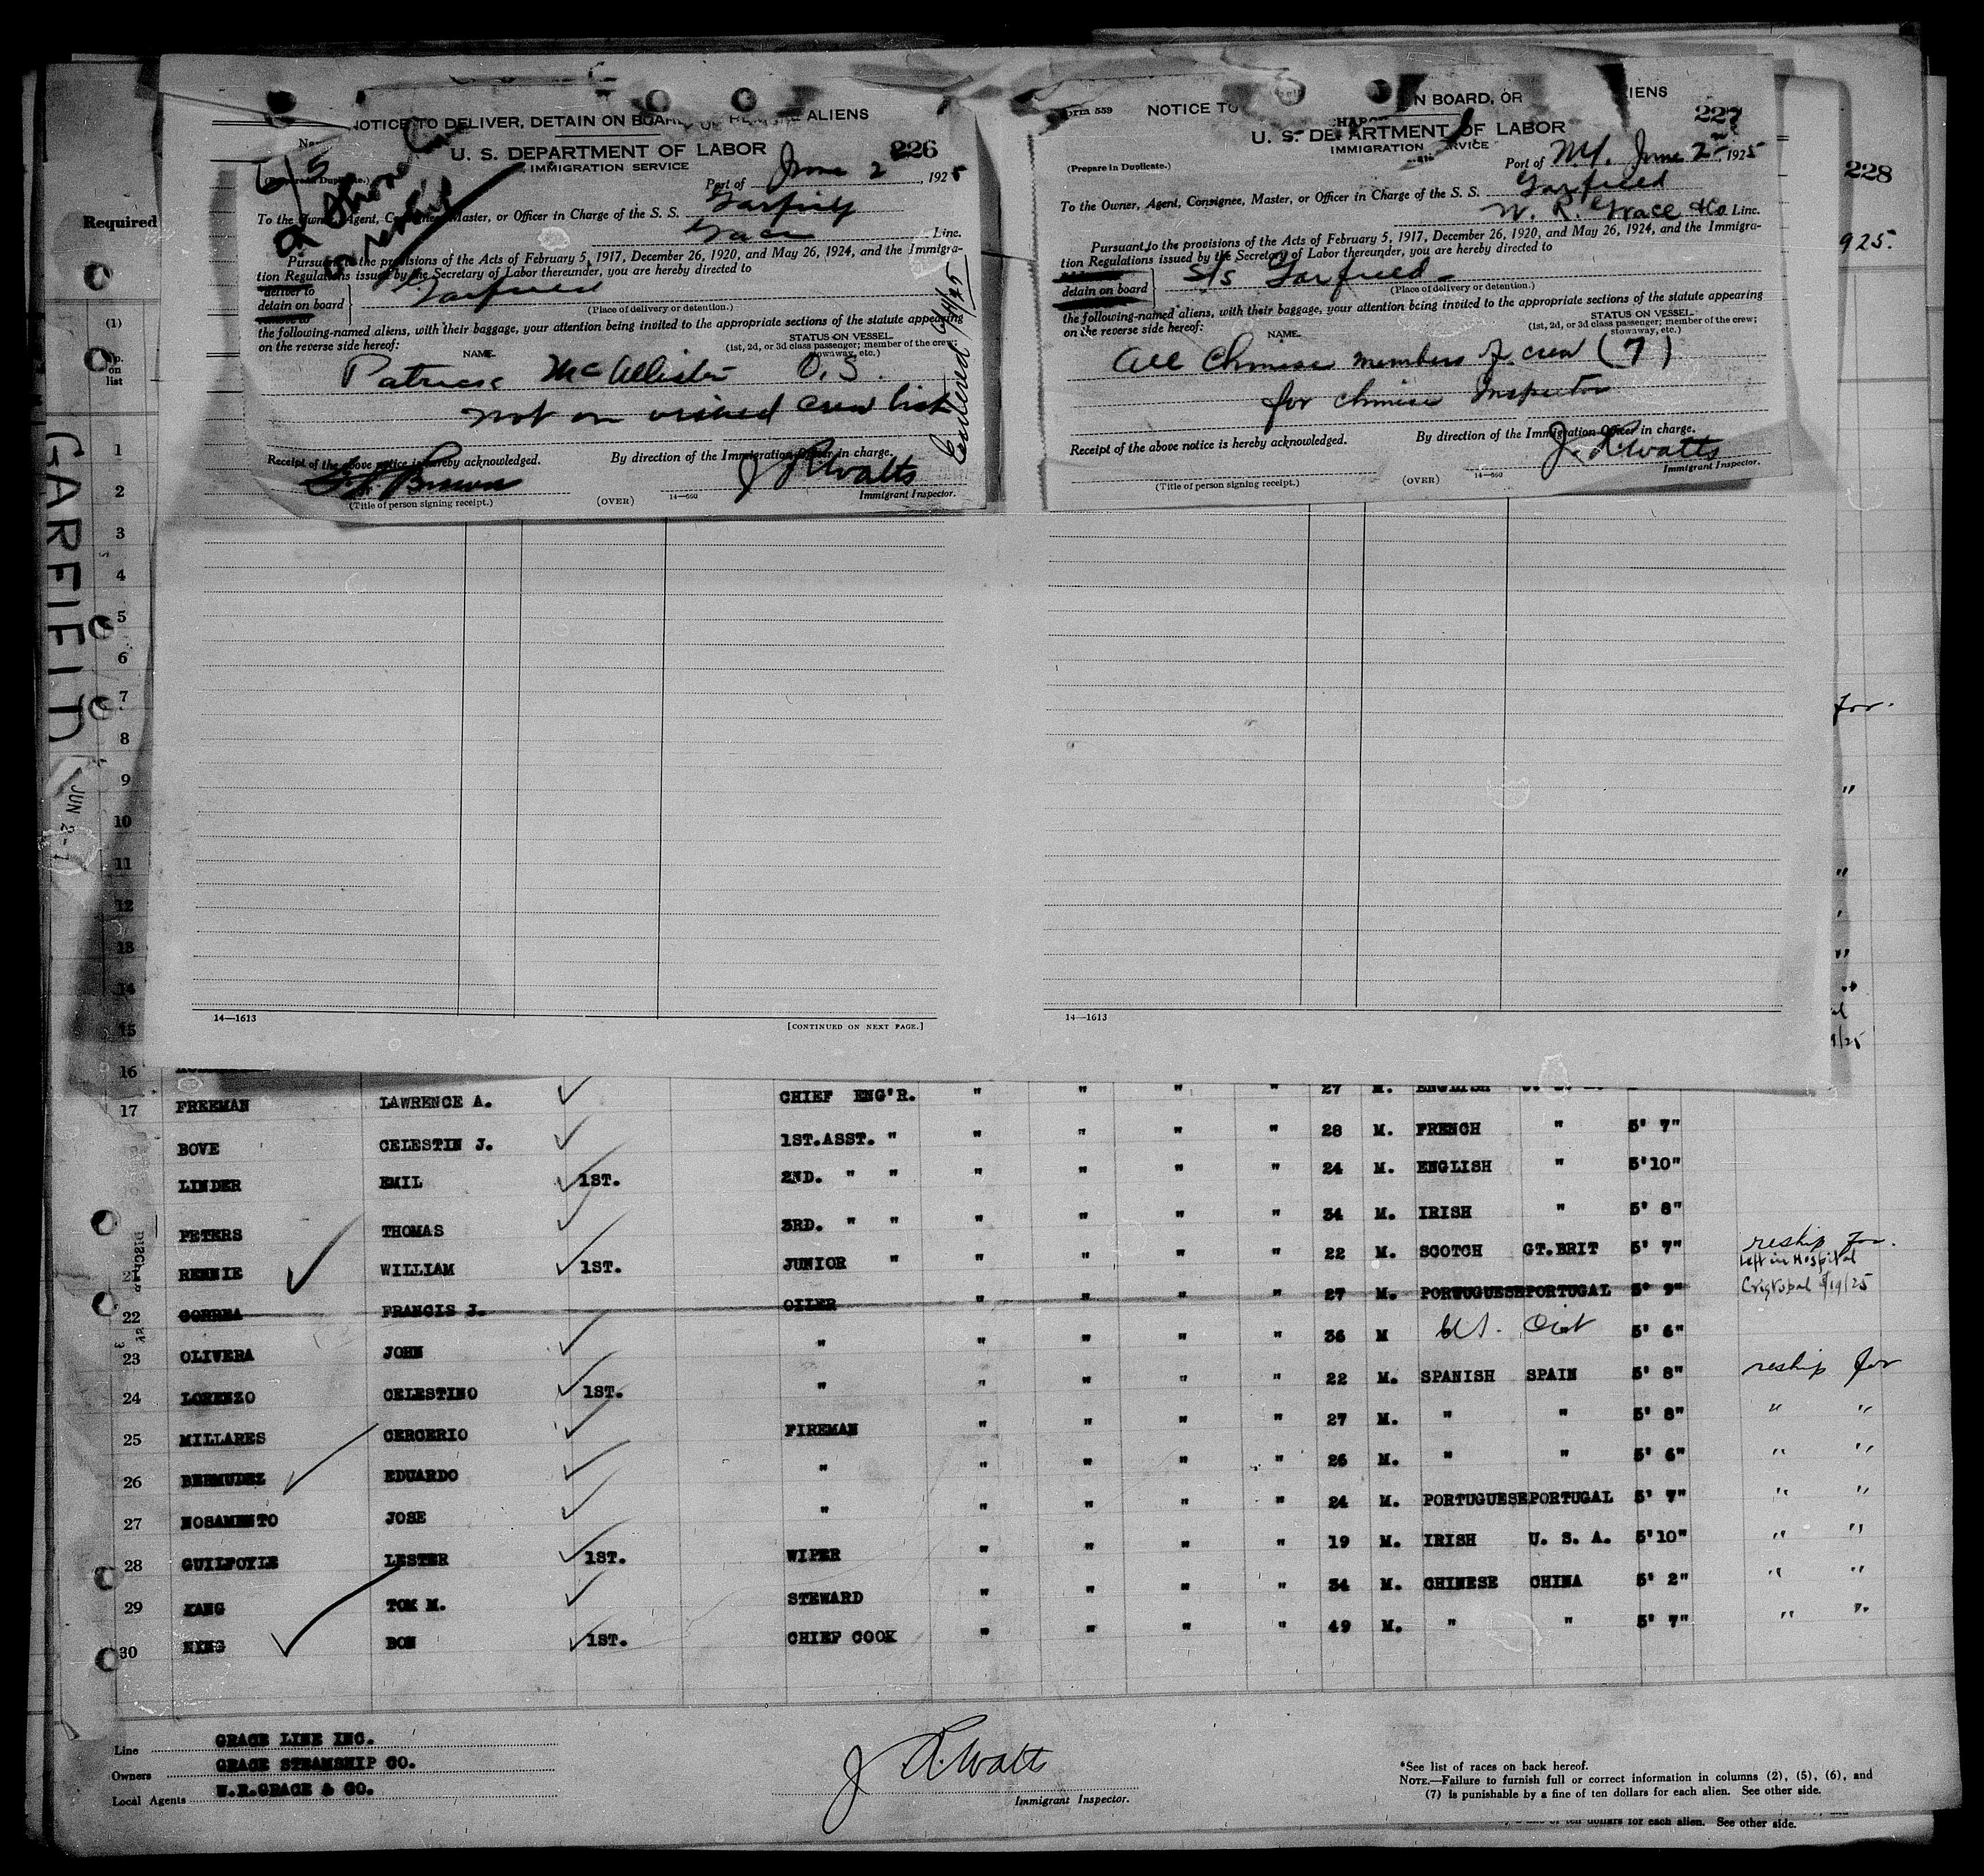 NOTICE TO DELIVER, DETAIN ON BOARD, OR ALIENS
226
U. S. DEPARTMENT OF LABOR
IMMIGRATION SERVICE
6/5
(Prepare in Duplicate.)
Port of June 2, 1925
To the Owner, Agent, Consignee, Master, or Officer in Charge of the S. S. Garfield
Grace Line.
Pursuant to the provisions of the Acts of February 5, 1917, December 26, 1920, and May 26, 1924, and the Immigra-
tion Regulations issued by the Secretary of Labor thereunder, you are hereby directed to
deliver to
detain on board
Garfield
(Place of delivery or detention.)
the following-named aliens, with their baggage, your attention being invited to the appropriate sections of the statute appearing
on the reverse side hereof:
NAME.
STATUS ON VESSEL.
(1st, 2d, or 3d class passenger; member of the crew; stowaway, etc.)
Patrick McAllister O.S.
not on visaed crew list
Receipt of the above notice is hereby acknowledged.
By direction of the Immigration Officer in charge.
Brown
J R Watts
(Title of person signing receipt.)
(OVER)
14—560
Immigrant Inspector.
Form 559
NOTICE TO N BOARD, OR IENS
227
U. S. DEPARTMENT OF LABOR
IMMIGRATION SERVICE
(Prepare in Duplicate.)
Port of NY. June 2nd, 1925
To the Owner, Agent, Consignee, Master, or Officer in Charge of the S. S. Garfield
W. R. Grace & Co Line.
Pursuant to the provisions of the Acts of February 5, 1917, December 26, 1920, and May 26, 1924, and the Immigra-
tion Regulations issued by the Secretary of Labor thereunder, you are hereby directed to
detain on board
S/S Garfield
(Place of delivery or detention.)
the following-named aliens, with their baggage, your attention being invited to the appropriate sections of the statute appearing
on the reverse side hereof:
NAME.
STATUS ON VESSEL.
(1st, 2d, or 3d class passenger; member of the crew; stowaway, etc.)
All Chinese members of crew (7)
for Chinese Inspector
Receipt of the above notice is hereby acknowledged.
By direction of the Immigration Officer in charge.
J. R Watts
(Title of person signing receipt.)
(OVER)
14—560
Immigrant Inspector.
228
925.
Required
(1)
on
list
GARFIELD
JUN 2-
1
2
3
4
5
6
7
for.
8
9
"
10
11
"
12
13
"
14
15
14—1613
[CONTINUED ON NEXT PAGE.]
14—1613
16
27 M. ENGLISH
17 FREEMAN LAWRENCE A. CHIEF ENG'R. " " " "
BOVE CELESTIN J. 1ST.ASST. " " " " " 28 M. FRENCH " 5' 7"
LINDER EMIL 1ST. 2ND. " " " " " " 24 M. ENGLISH " 5'10"
PETERS THOMAS 3RD. " " " " " " 34 M. IRISH " 5' 8"
21 RENNIE WILLIAM 1ST. JUNIOR " " " " " 22 M. SCOTCH GT.BRIT 5' 7" reship for.
22 CORREA FRANCIS J. OILER " " " " 27 M. PORTUGUESE PORTUGAL 5' 9" Left in Hospital Cristobal 5/19/25
23 OLIVERA JOHN " " " " " 36 M US. Cit 5' 6"
24 LORENZO CELESTINO 1ST. " " " " " 22 M. SPANISH SPAIN 5' 8" reship for
25 MILLARES CERCERIO FIREMAN " " " " 27 M. " " 5' 8" " "
26 BERMUDEZ EDUARDO " " " " " 26 M. " " 5' 6" " "
27 NOSAMENTO JOSE " " " " " 24 M. PORTUGUESE PORTUGAL 5' 7" " "
28 GUILFOYLE LESTER 1ST. WIPER " " " " 19 M. IRISH U. S. A. 5'10" " "
29 KANG TOM M. STEWARD " " " " 34 M. CHINESE CHINA 5' 2" " "
30 NING BON 1ST. CHIEF COOK " " " " 49 M. " " 5' 7" " "
Line GRACE LINE INC.
Owners GRACE STEAMSHIP CO.
Local Agents W.R.GRACE & CO.
J R. Watts
Immigrant Inspector.
*See list of races on back hereof.
NOTE.—Failure to furnish full or correct information in columns (2), (5), (6), and
(7) is punishable by a fine of ten dollars for each alien. See other side.
ten dollars for each alien. See other side.